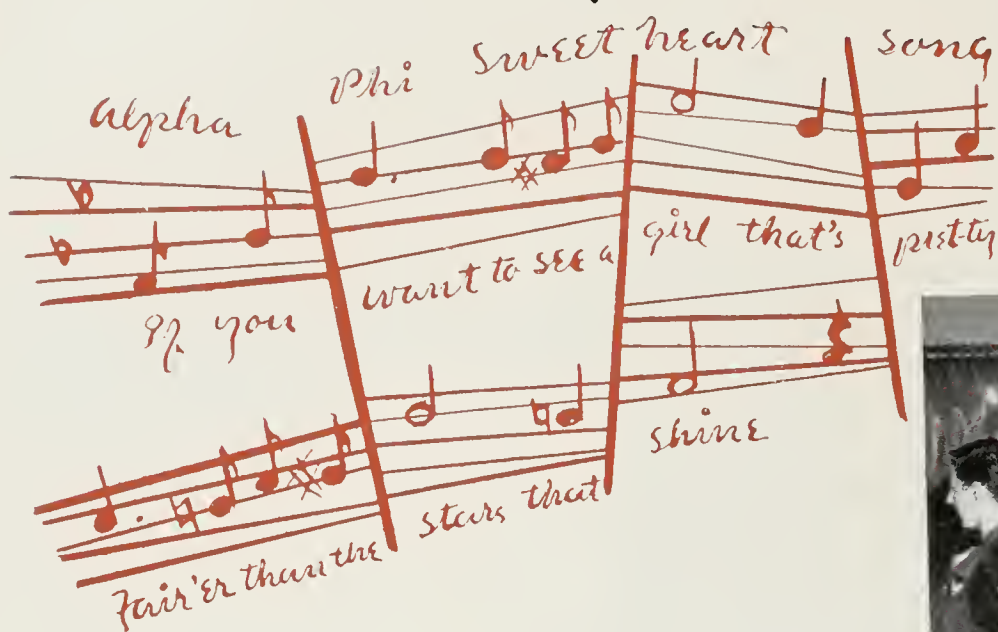 Alpha Phi Sweet heart Song
If you want to see a girl that's pret-ty
Fair'er than the stars that shine